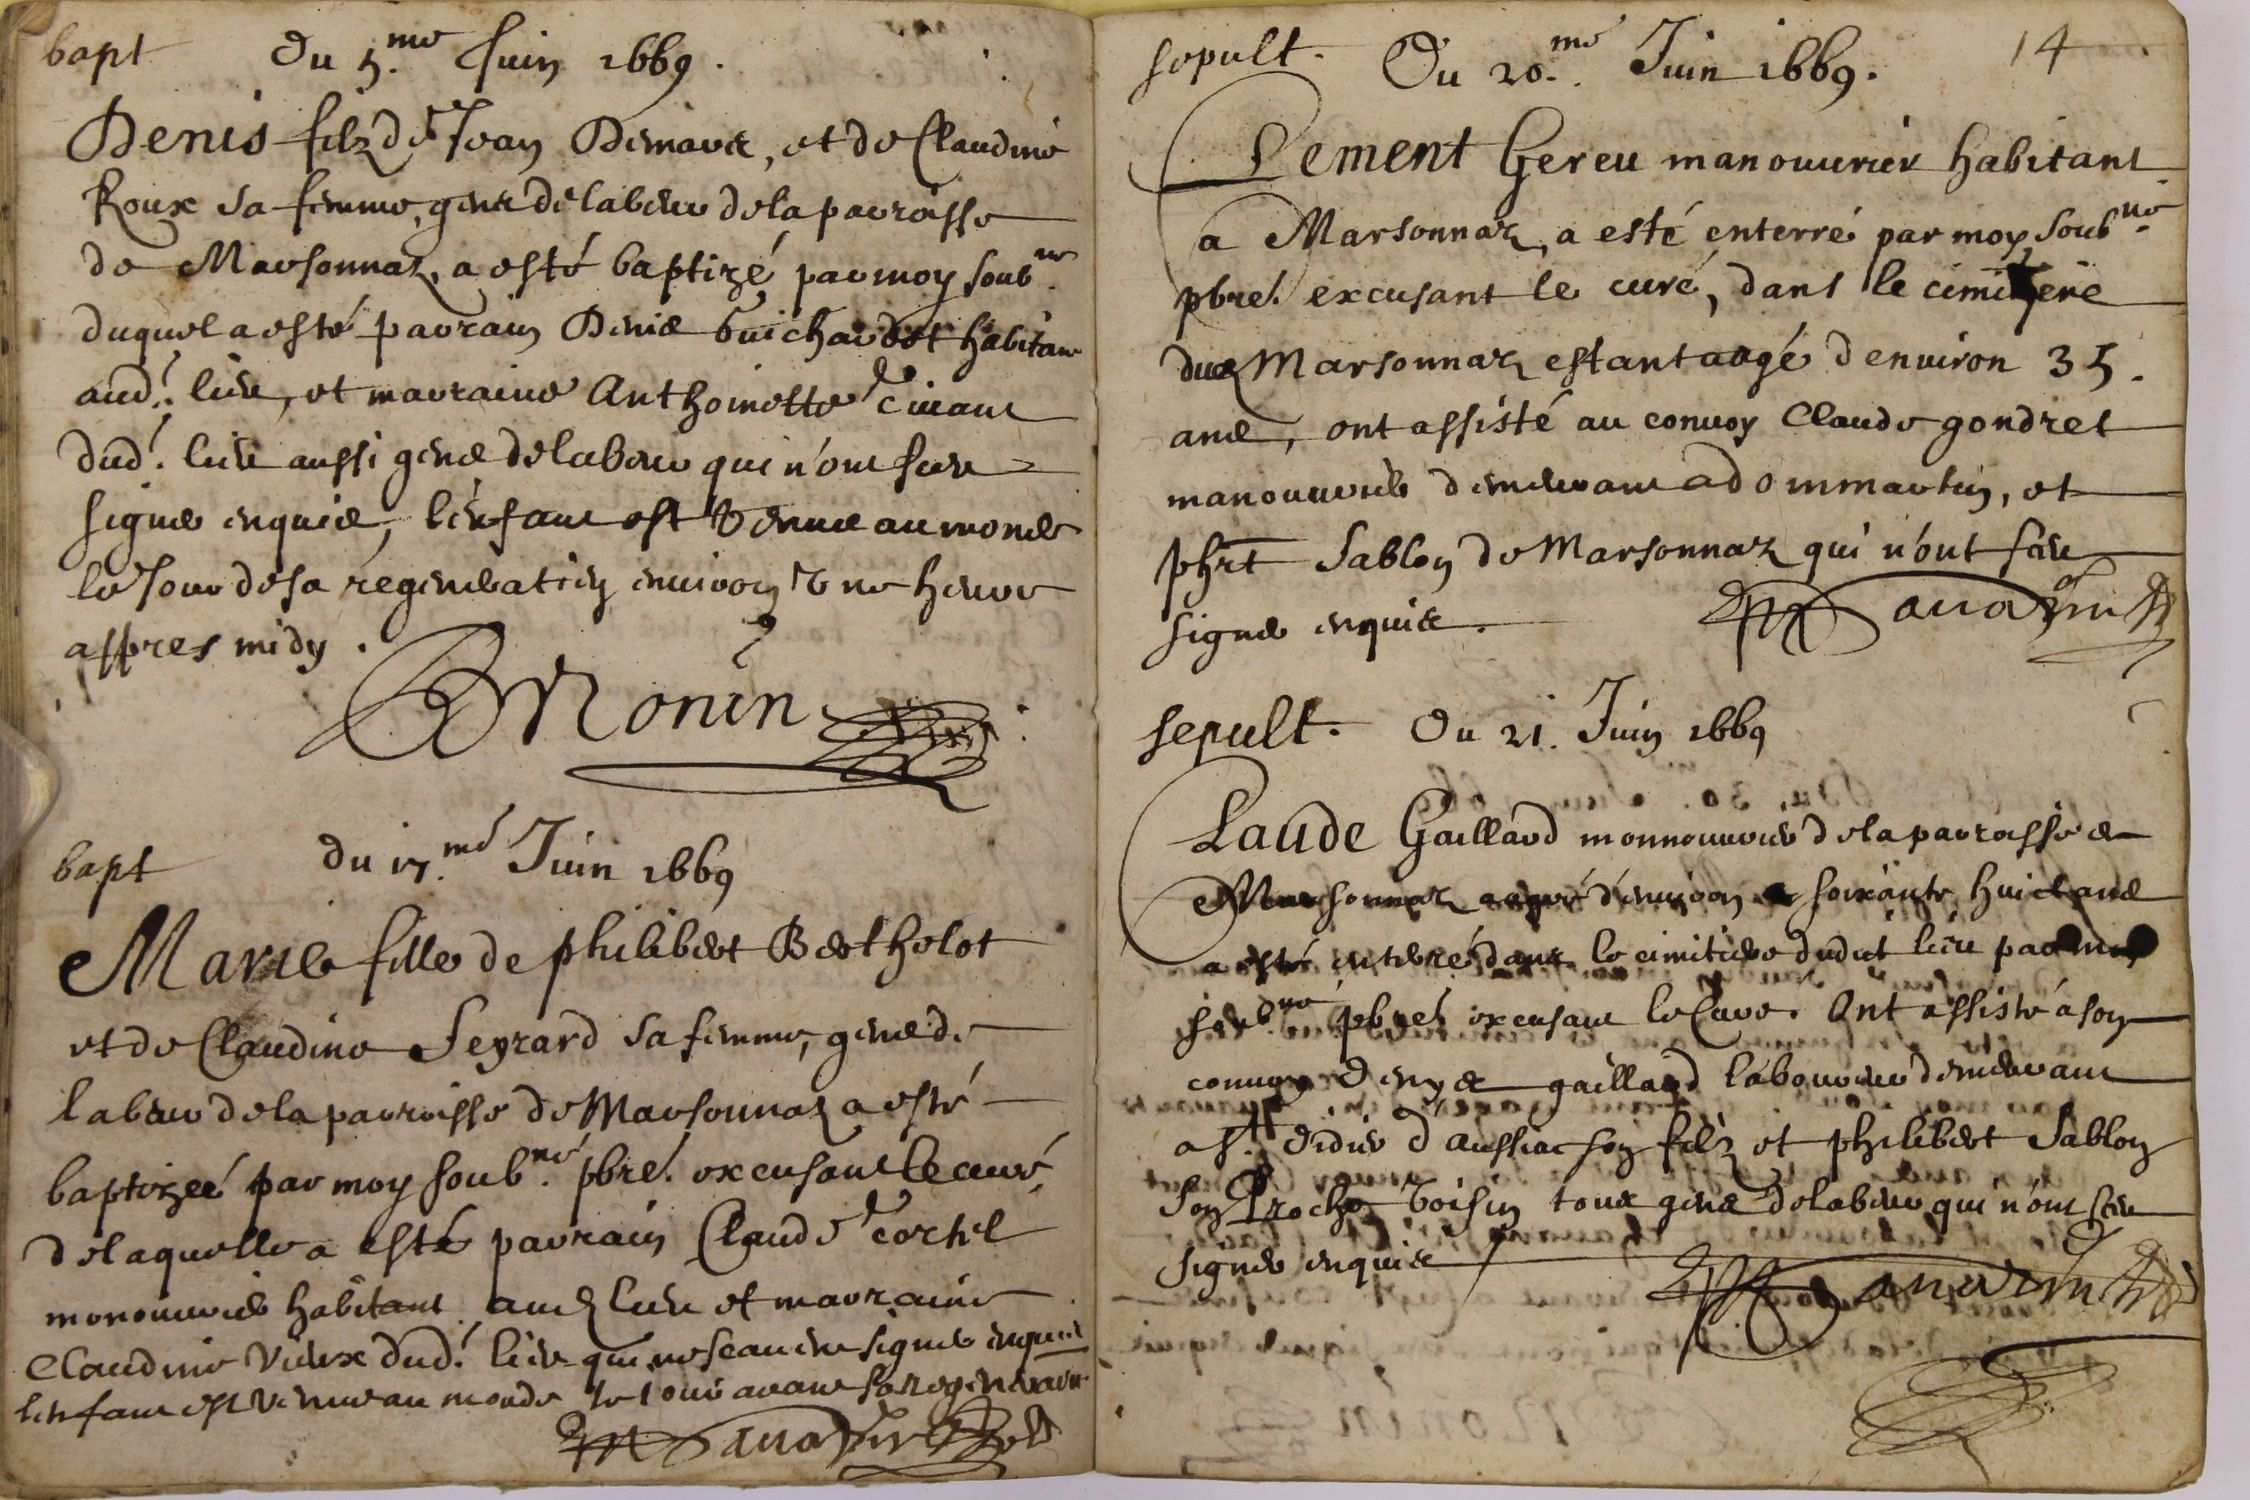 bapt Du 5.me Juin 1669.
Denis filz de Jean Demave, et de Claudine
Roux sa femme, gens de labeur de la parroisse
de Marsonnaz, a esté baptizé par moy soub.ne
duquel a esté parrain Denis Guichardot habitant
aud.t lieu, et marraine Anthoinette
dud.t lieu aussi gens de labeur qui n'ont sceu
signer enquis, l'enfant est venu au monde
le jour de sa regeneration environ une heure
appres midy.
BRonin
bapt du 17.me Juin 1669
Marie fille de philibert Bertholot
et de Claudine Feyrard sa femme, gens de
labeur de la parroisse de Marsonnaz a esté
baptizeé par moy soub.ne pbre. excusant le curé,
de laquelle a esté parrain Claude
monouvrier habitant aud lieu et marraine
Claudine Vieux dud.t lieu qui ne sceaivent signer enquis
l'enfant est venue au monde le jour avant sa regeneration
14
sepult. Du 20.me Juin 1669.
Clement Gereu manouurier habitant
a Marsonnaz, a esté enterré par moy soub.ne
pbre. excusant le curé, dans le cimitere
dud Marsonnaz estant aagé d'environ 35.
ans, ont assisté au convoy Claude gondret
manouvrier demeurant a dommartin, et
phrt Sablon de Marsonnaz qui n'ont sceu
signer enquis.
sepult. Du 21. Juin 1669
Claude Gaillard monnouvrier de la parroisse de
Marsonnaz aagé d'environ soixante huict ans
a esté enterré dans le cimitiere dudit lieu par moy
soub.ne pbre. excusant le Curé. Ont assisté a son
convoy Denys gaillard laboureur demeurant
a St. Didier d'aussiac son filz et philibert Sablon
son Proche voisin tous gens de labeur qui n'ont sceu
signer enquis